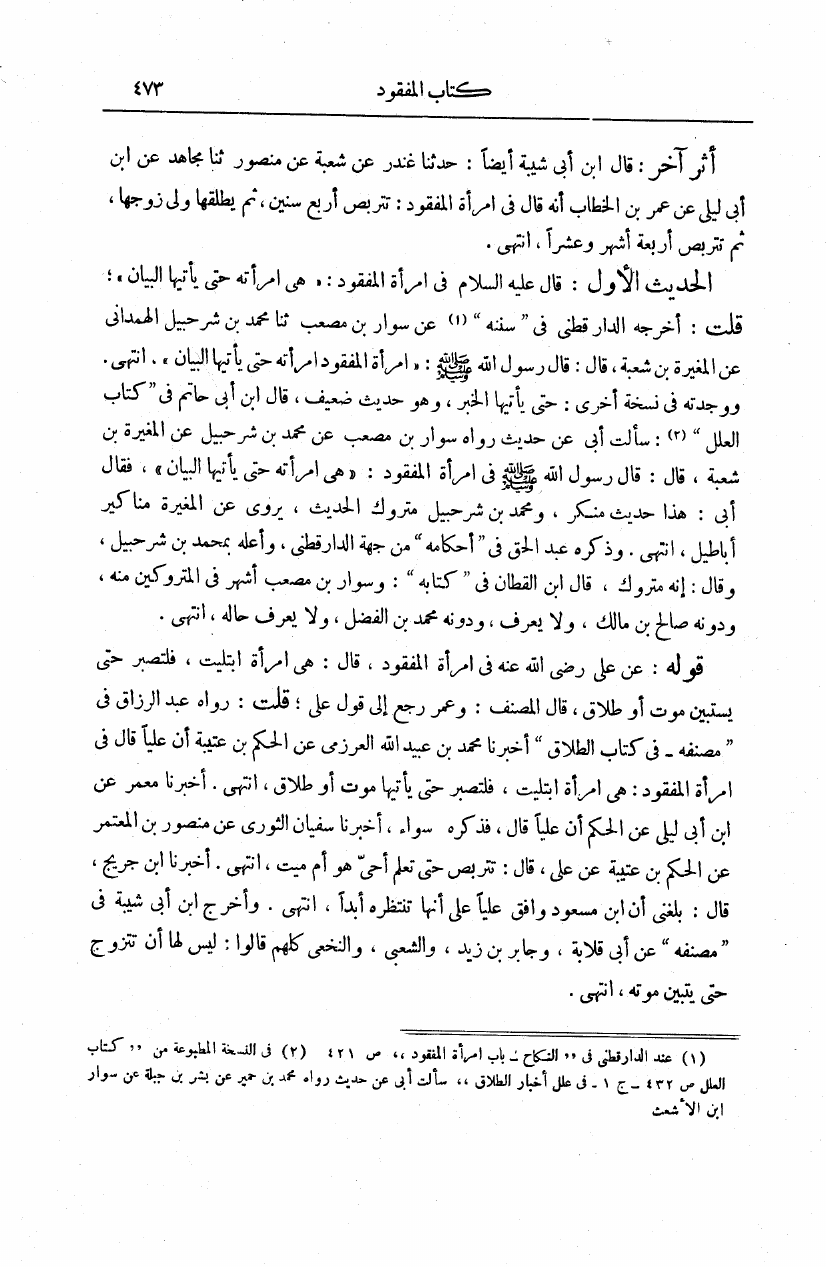 كتاب المفقود ٤٧٣
أثر آخر : قال ابن أبى شيبة أيضاً : حدثنا غندر عن شعبة عن منصور ثنا مجاهد عن ابن
أبى ليلى عن عمر بن الخطاب أنه قال فى امرأة المفقود : تتربص أربع سنين ، ثم يطلقها ولى زوجها ،
ثم تتربص أربعة أشهر وعشراً ، انتهى .
الحديث الأول : قال عليه السلام فى امرأة المفقود : « هى امرأته حتى يأتيها البيان » ؛
قلت : أخرجه الدارقطنى فى ” سننه “ (١) عن سوار بن مصعب ثنا محمد بن شرحبيل الهمدانى
عن المغيرة بن شعبة ، قال : قال رسول الله ﷺ : « امرأة المفقود امرأته حتى يأتيها البيان » . انتهى .
ووجدته فى نسخة أخرى : حتى يأتيها الخبر ، وهو حديث ضعيف ، قال ابن أبى حاتم فى ” كتاب
العلل “ (٢) : سألت أبى عن حديث رواه سوار بن مصعب عن محمد بن شرحبيل عن المغيرة بن
شعبة ، قال : قال رسول الله ﷺ فى امرأة المفقود : « هى امرأته حتى يأتيها البيان » ، فقال
أبى : هذا حديث منكر ، ومحمد بن شرحبيل متروك الحديث ، يروى عن المغيرة مناكير
أباطيل ، انتهى . وذكره عبد الحق فى ” أحكامه “ من جهة الدارقطنى ، وأعله بمحمد بن شرحبيل ،
وقال : إنه متروك ، قال ابن القطان فى ” كتابه “ : وسوار بن مصعب أشهر فى المتروكين منه ،
ودونه صالح بن مالك ، ولا يعرف ، ودونه محمد بن الفضل ، ولا يعرف حاله ، انتهى .
قوله : عن على رضى الله عنه فى امرأة المفقود ، قال : هى امرأة ابتليت ، فلتصبر حتى
يستبين موت أو طلاق ، قال المصنف : وعمر رجع إلى قول على ؛ قلت : رواه عبد الرزاق فى
” مصنفه ـ فى كتاب الطلاق “ أخبرنا محمد بن عبيد الله العرزمى عن الحكم بن عتيبة أن علياً قال فى
امرأة المفقود : هى امرأة ابتليت ، فلتصبر حتى يأتيها موت أو طلاق ، انتهى . أخبرنا معمر عن
ابن أبى ليلى عن الحكم أن علياً قال ، فذكره سواء ، أخبرنا سفيان الثورى عن منصور بن المعتمر
عن الحكم بن عتيبة عن على ، قال : تتربص حتى تعلم أحىّ هو أم ميت ، انتهى . أخبرنا ابن جريج ،
قال : بلغنى أن ابن مسعود وافق علياً على أنها تنتظره أبداً ، انتهى . وأخرج ابن أبى شيبة فى
” مصنفه “ عن أبى قلابة ، وجابر بن زيد ، والشعبى ، والنخعى كلهم قالوا : ليس لها أن تتزوج
حتى يتبين موته ، انتهى .
(١) عند الدارقطنى فى ,, النكاح ـ باب امرأة المفقود ،، ص ٤٢١ (٢) فى النسخة المطبوعة من ,, كتاب
العلل ص ٤٣٢ ـ ج ١ ـ فى علل أخبار الطلاق ،، سألت أبى عن حديث رواه محمد بن حمير عن بشر بن جبلة عن سوار
ابن الأشعث